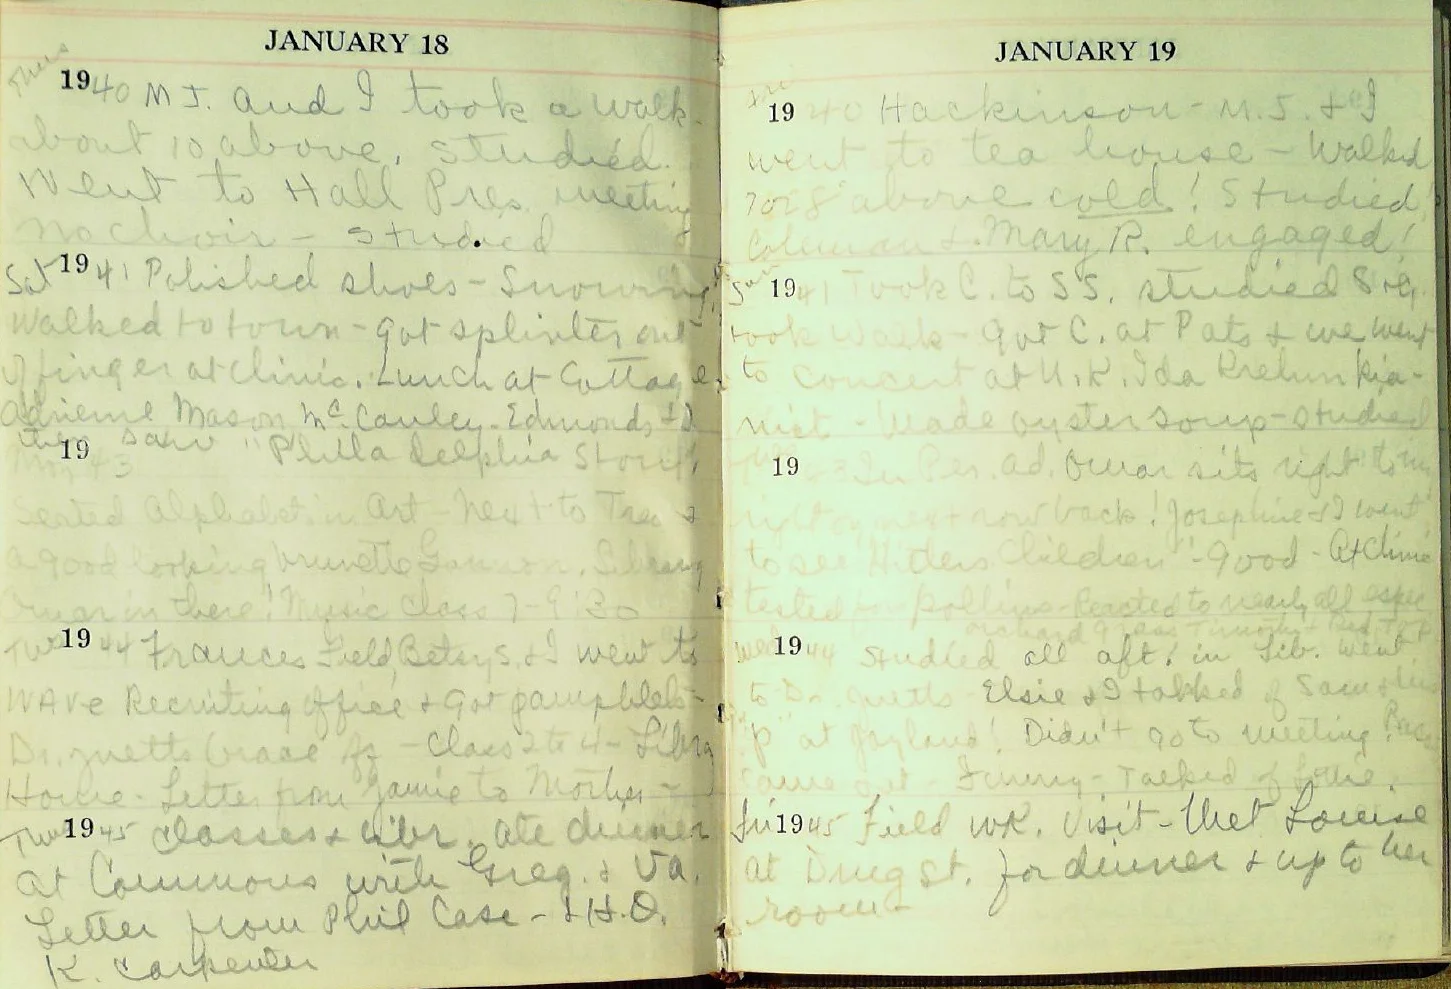 JANUARY 18
Thurs
1940 M J. and I took a walk-
about 10 above. Studied.
Went to Hall Pres. meeting
No choir - studied
Sat 1941 Polished shoes - Snowing,
walked to town - got splinter out
of finger at clinic. Lunch at Cottage.
Adrienne Mason McCauley - Edmonds &
then saw "Philla delphia Story"
19 43
Seated Alphabet. in Art - Next to
a good looking brunette Gannon. Library
Omar in there! Music Class 7-9:30
Tue 1944 Frances Field, Betsy S. & I went to
WAVE Recruiting office & got pamphlets-
Dr. Jnetts - Class 2 to 4 - Libra
Home - Letter from Jamie to Mother -
1945 classes & Libr. ate dinner
at Commons with Greg. & Va.
Letter from Phil Case - & H.O.
K. Carpenter
JANUARY 19
1940 Hackinson - M. J. & I
went to tea house - Walked
7 or 8 above cold! Studied
Coleman & Mary R. engaged!
1941 Took C. to SS. studied
took walk - got C. at Pats & we went
to concert at U.K. Ida Krehm pia-
nist - Made oyster soup - studied
19 43 In Per. ad. Omar sits right to my
right on next row back! Josephine & I went
to see "Hitlers Children" - good - At Clinic
tested for pollins - Reacted to nearly all espec
orchard grass Timothy & Red Top
Wed 1944 Studied all aft. in Lib. Went
to Dr. Jnetts - Elsie & I talked of Sam &
"p" at Joyland! Didn't go to meeting!
came out - Funny - Talked of
Fri 1945 Field WK. Visit - Met Louise
at Drug St. for dinner & up to her
room -